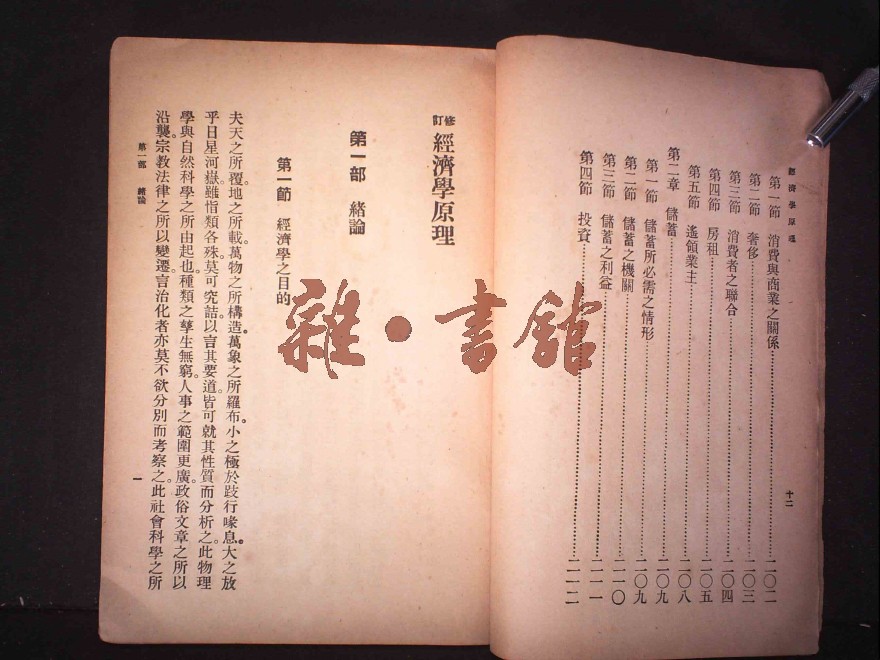 經濟學原理
第一節 消費與商業之關係 二〇二
第二節 奢侈 二〇三
第三節 消費者之聯合 二〇四
第四節 房租 二〇五
第五節 遙領業主 二〇八
第二章 儲蓄 二〇九
第一節 儲蓄所必需之情形 二〇九
第二節 儲蓄之機關 二一〇
第三節 儲蓄之利益 二一一
第四節 投資 二一二
十二
修訂 經濟學原理
第一部 緒論
第一節 經濟學之目的
夫天之所覆。地之所載。萬物之所構造。萬象之所羅布。小之極於跂行喙息。大之放
乎日星河嶽。雖恉類各殊。莫可究詰。以言其要道。皆可就其性質而分析之。此物理
學與自然科學之所由起也。種類之孳生無窮。人事之範圍更廣。政俗文章之所以
沿襲。宗教法律之所以變遷。言治化者亦莫不欲分別而考察之。此社會科學之所
第一部 緒論
一
雜·書館